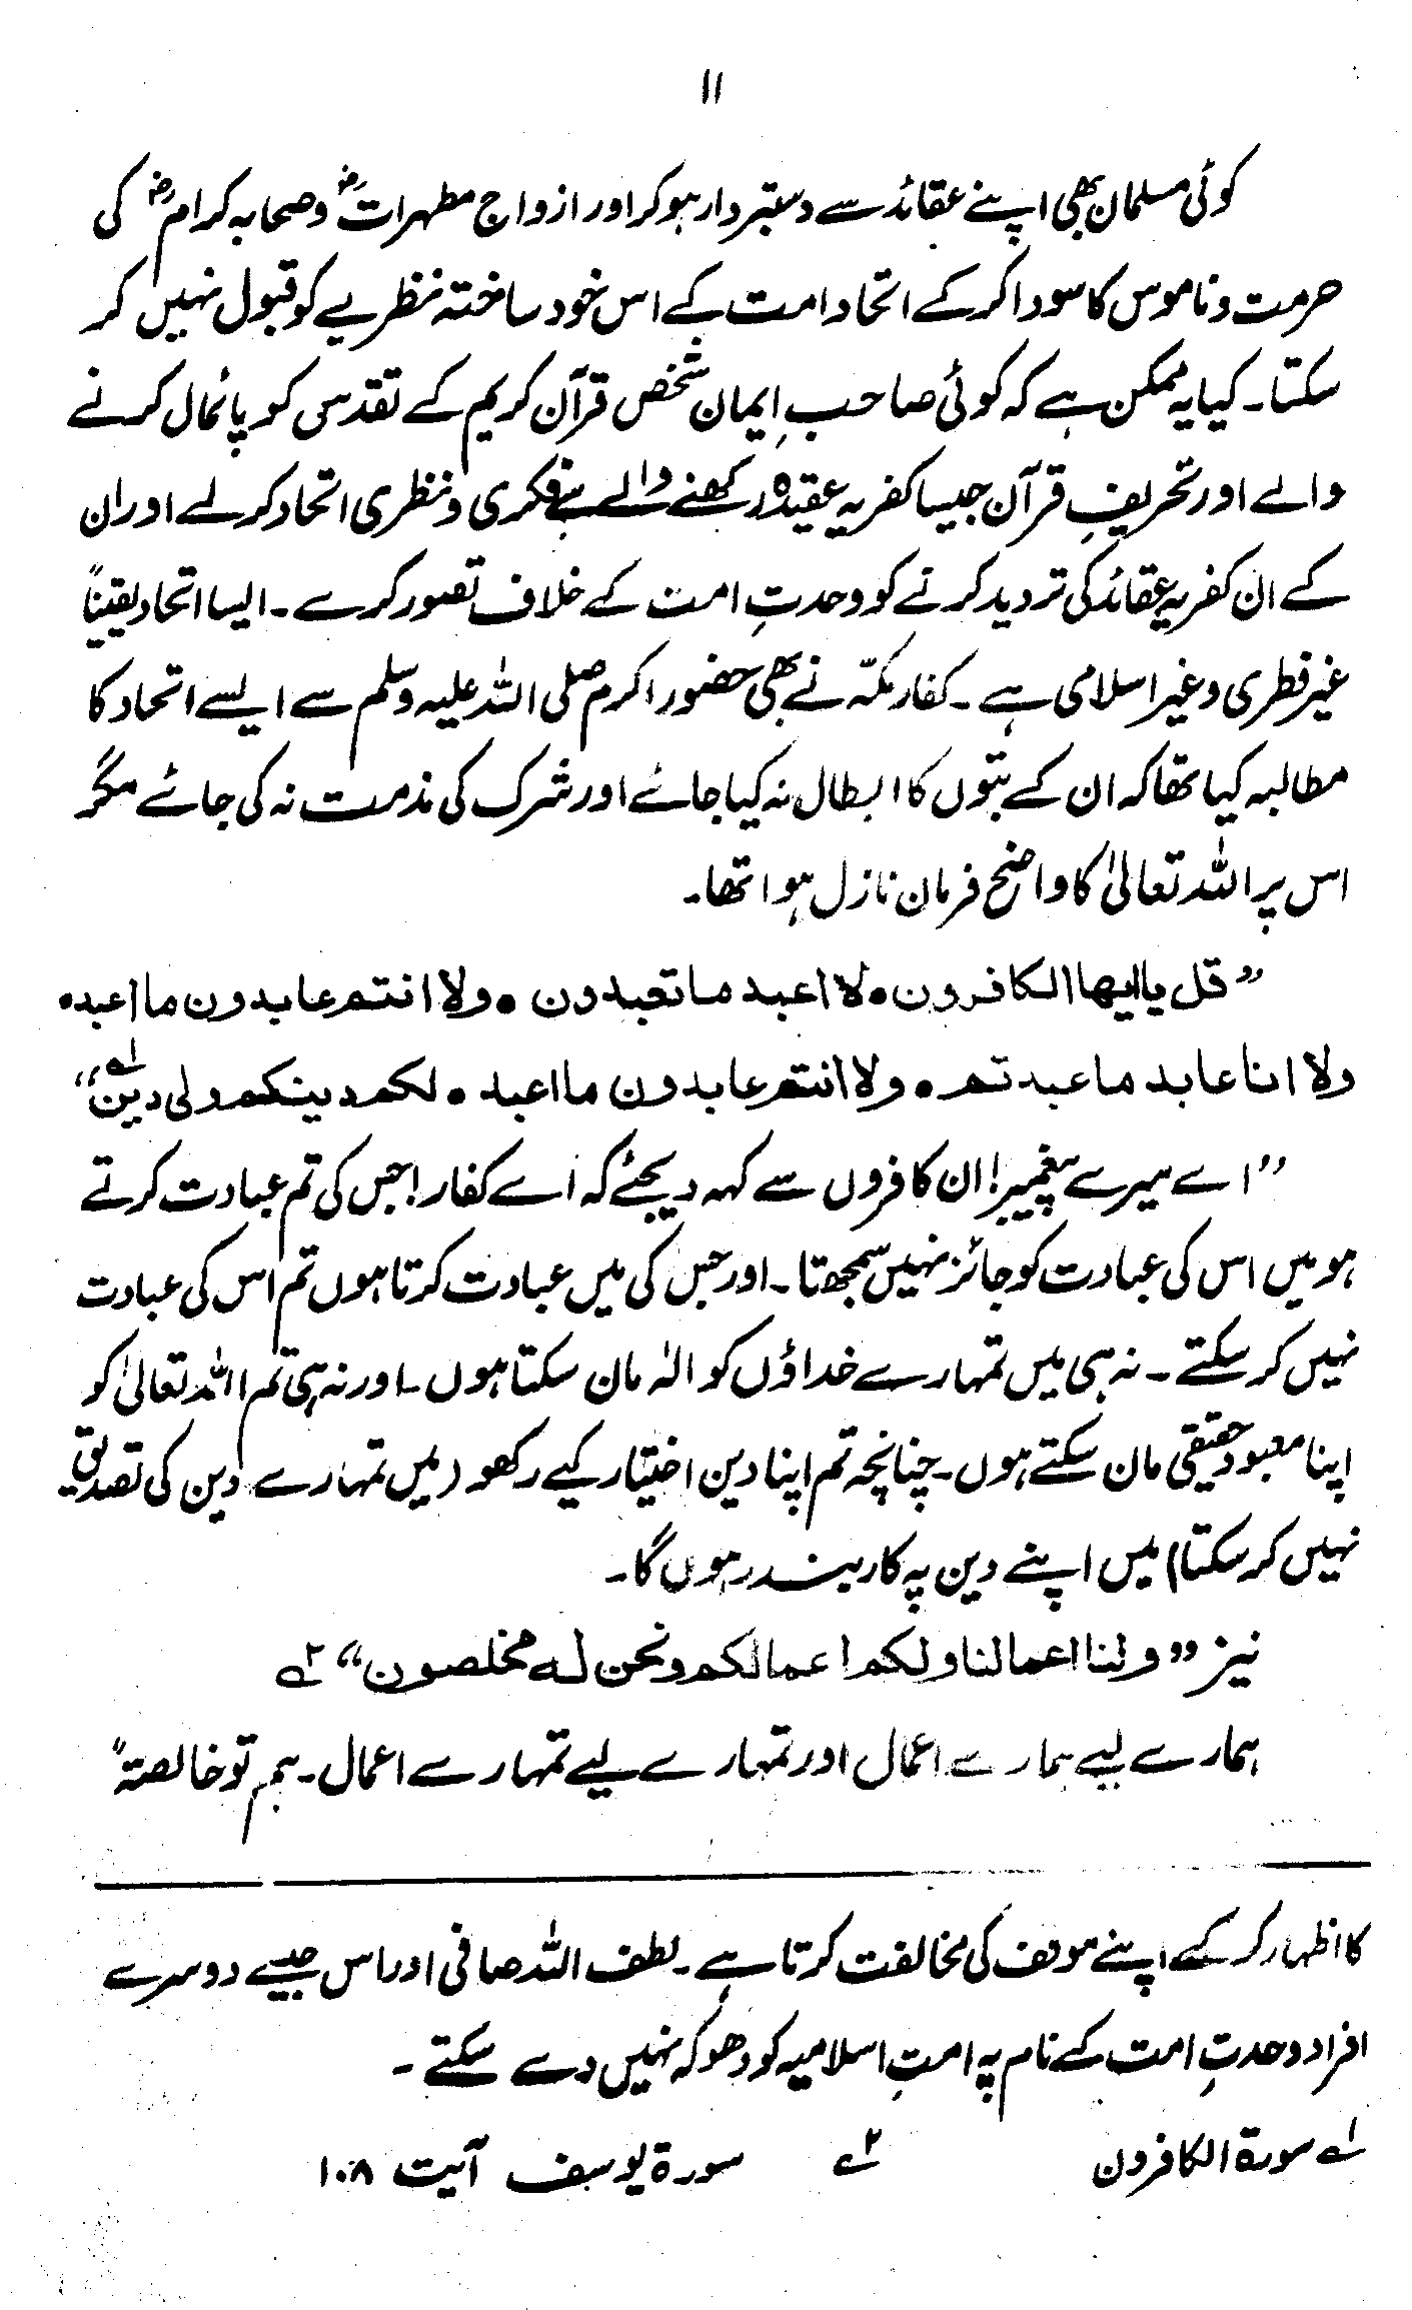 ۱۱
کوئی مسلمان بھی اپنے عقائد سے دستبردار ہو کر اور ازواج مطہراتؓ و صحابہ کرامؓ کی
حرمت و ناموس کا سودا کر کے اتحاد امت کے اس خود ساختہ نظریے کو قبول نہیں کر
سکتا۔ کیا یہ ممکن ہے کہ کوئی صاحبِ ایمان شخص قرآن کریم کے تقدس کو پائمال کرنے
والے اور تحریفِ قرآن جیسا کفریہ عقیدہ رکھنے والے سے فکری و نظری اتحاد کر لے اور ان
کے ان کفریہ عقائد کی تردید کرنے کو وحدتِ امت کے خلاف تصور کرے۔ ایسا اتحاد یقیناً
غیر فطری و غیر اسلامی ہے۔ کفار مکّہ نے بھی حضور اکرم صلی اللہ علیہ وسلم سے ایسے اتحاد کا
مطالبہ کیا تھا کہ ان کے بتوں کا ابطال نہ کیا جائے اور شرک کی مذمت نہ کی جائے مگر
اس پر اللہ تعالیٰ کا واضح فرمان نازل ہوا تھا۔
”قل یا ایھا الکافرون • لا اعبد ما تعبدون • ولا انتم عابدون ما اعبد •
ولا انا عابد ما عبدتم • ولا انتم عابدون ما اعبد • لکم دینکم ولی دین“ ۱ے
”اے میرے پیغمبر! ان کافروں سے کہہ دیجئے کہ اے کفار! جس کی تم عبادت کرتے
ہو میں اس کی عبادت کو جائز نہیں سمجھتا۔ اور جس کی میں عبادت کرتا ہوں تم اس کی عبادت
نہیں کر سکتے۔ نہ ہی میں تمہارے خداؤں کو الٰہ مان سکتا ہوں۔ اور نہ ہی تم اللہ تعالیٰ کو
اپنا معبود حقیقی مان سکتے ہوں۔ چنانچہ تم اپنا دین اختیار کیے رکھو (میں تمہارے دین کی تصدیق
نہیں کر سکتا) میں اپنے دین پہ کاربند رہوں گا۔
نیز ”ولنا اعمالنا ولکم اعمالکم ونحن لہ مخلصون“ ۲ے
ہمارے لیے ہمارے اعمال اور تمہارے لیے تمہارے اعمال۔ ہم تو خالصتہً
کا اظہار کر کے اپنے موقف کی مخالفت کرتا ہے۔ لطف اللہ صافی اور اس جیسے دوسرے
افراد وحدتِ امت کے نام پہ امتِ اسلامیہ کو دھوکہ نہیں دے سکتے۔
۱ے سورۃ الکافرون ۲ے سورۃ یوسف آیت ۱۰۸